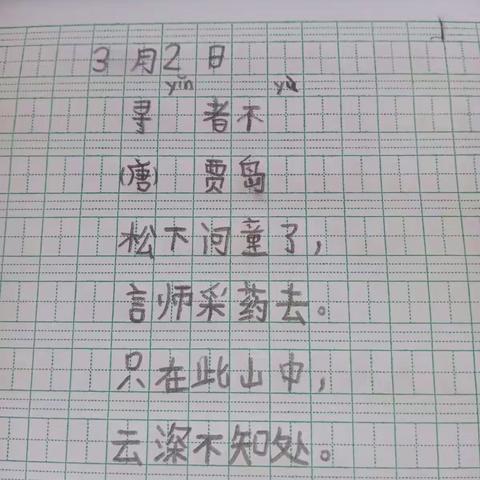 3月2日
yǐn yù
寻 者不
(唐) 贾岛
松下问童了,
言师采药去。
只在此山中,
云深不知处。